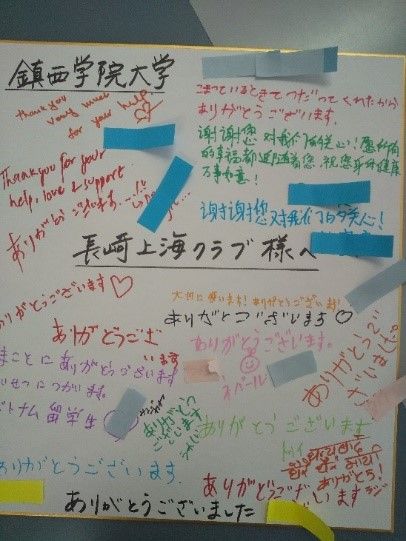 鎮西学院大学
thank you
very much
for your help
こまっているときてつだってくれたから
ありがとうございます。
谢谢您对我们的关心!愿所有
的幸福都追随着您,祝您身体健康
万事如意!
Thank you for your
help, love & support...
ありがとう ございます
谢谢您对我们的关心!
長崎上海クラブ様へ
ありがとうございます♡
大切に使います!ありがとうございます
ありがとうございます♡
ありがとうござ
います
ありがとうございます。
ネパール
ありがとうご
ざいました。
まことにありがとうございます
トナム留学生
ありがとう
ございます
ありがとうございます
ありがとうございます.
ありがとう!
ありがとうございます
ありがとうございました